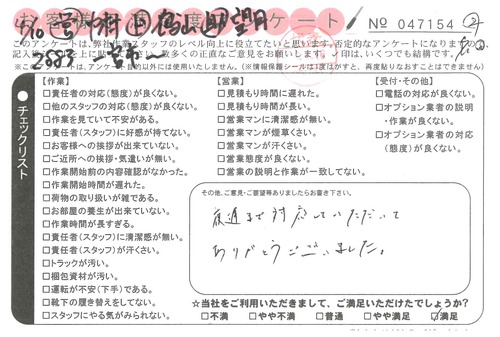 お客様満足度アンケート
No 047154
このアンケートは、弊社作業スタッフのレベル向上に役立てたいと思います。否定的なアンケートになりますので、
※このアンケートは、アンケート目的以外には使用いたしません。(※情報保護シールは1度はがすと、再度貼りなおすことはできません)
チェックリスト
【作業】
□責任者の対応(態度)が良くない。
□他のスタッフの対応(態度)が良くない。
□作業を見ていて不安がある。
□責任者(スタッフ)に好感が持てない。
□お客様への挨拶が出来ていない。
□ご近所への挨拶・気遣いが無い。
□作業開始前の内容確認がなかった。
□作業開始時間が遅れた。
□荷物の取り扱いが雑である。
□お部屋の養生が出来ていない。
□作業時間が長すぎる。
□責任者(スタッフ)に清潔感が無い。
□責任者(スタッフ)が汗くさい。
□トラックが汚い。
□梱包資材が汚い。
□運転が不安(下手)である。
□靴下の履き替えをしてない。
□スタッフにやる気がみられない。
【営業】
□見積もり時間に遅れた。
□見積もり時間が長い。
□営業マンに清潔感が無い。
□営業マンが煙草くさい。
□営業マンが汗くさい。
□営業態度が良くない。
□営業の説明と作業が一致してない。
【受付・その他】
□電話の対応が良くない。
□オプション業者の説明
・作業が良くない。
□オプション業者の対応
(態度)が良くない。
その他、ご意見・ご要望等ありましたらお書き下さい。
夜遅まで対応していただいて
ありがとうございました。
☆当社をご利用いただきまして、ご満足いただけたでしょうか?
□不満 □やや不満 □普通 □やや満足 □満足